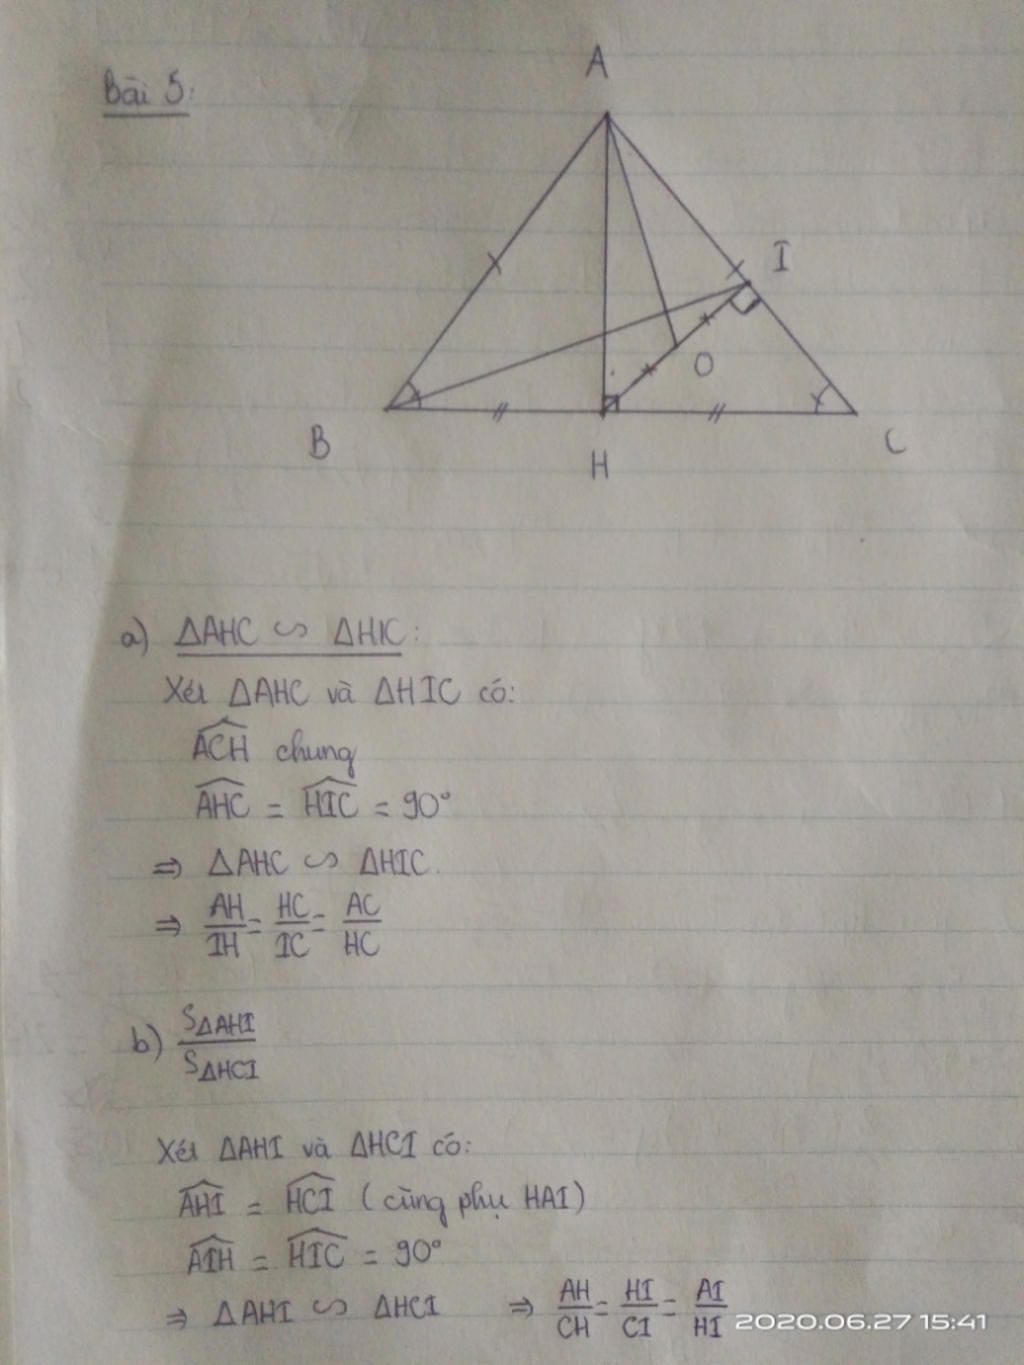 Bài 5:
A
I
O
B
H
C
a) ΔAHC ∽ ΔHIC:
Xét ΔAHC và ΔHIC có:
\widehat{ACH} chung
\widehat{AHC} = \widehat{HIC} = 90°
⇒ ΔAHC ∽ ΔHIC.
⇒ AH/IH = HC/IC = AC/HC
b) SΔAHI/SΔHCI
Xét ΔAHI và ΔHCI có:
\widehat{AHI} = \widehat{HCI} (cùng phụ HAI)
\widehat{AIH} = \widehat{HIC} = 90°
⇒ ΔAHI ∽ ΔHCI ⇒ AH/CH = HI/CI = AI/HI
2020.06.27 15:41